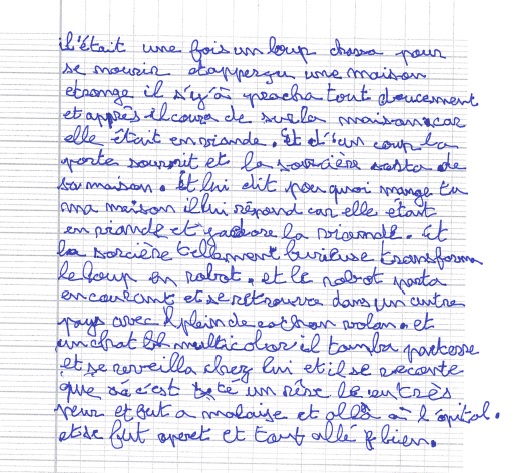 il'était une fois un loup chassa pour
se mourir etapperçu une maison
etrange il s'y'à procha tout doucement
et apprès il coura de sur la maison car
elle était en viande. Et d'un coup la
porte souvrit et la sorcière sorta de
sa maison. Et lui dit pourquoi mange tu
ma maison il lui répond car elle était
en viande et j'adore la viande. Et
la sorcière tellement furieuse transforma
le loup en robot. et le robot parta
en courant et se retrouva dans un autre
pays avec plein de cochon volan. et
un chat multicolor il tomba par terre
et se reveilla chez lui et il se raconte
que sa c'est té un rêve le entrès
peur et fut a malaise et alla à l'opital.
et se fut operet et tout allé bien.